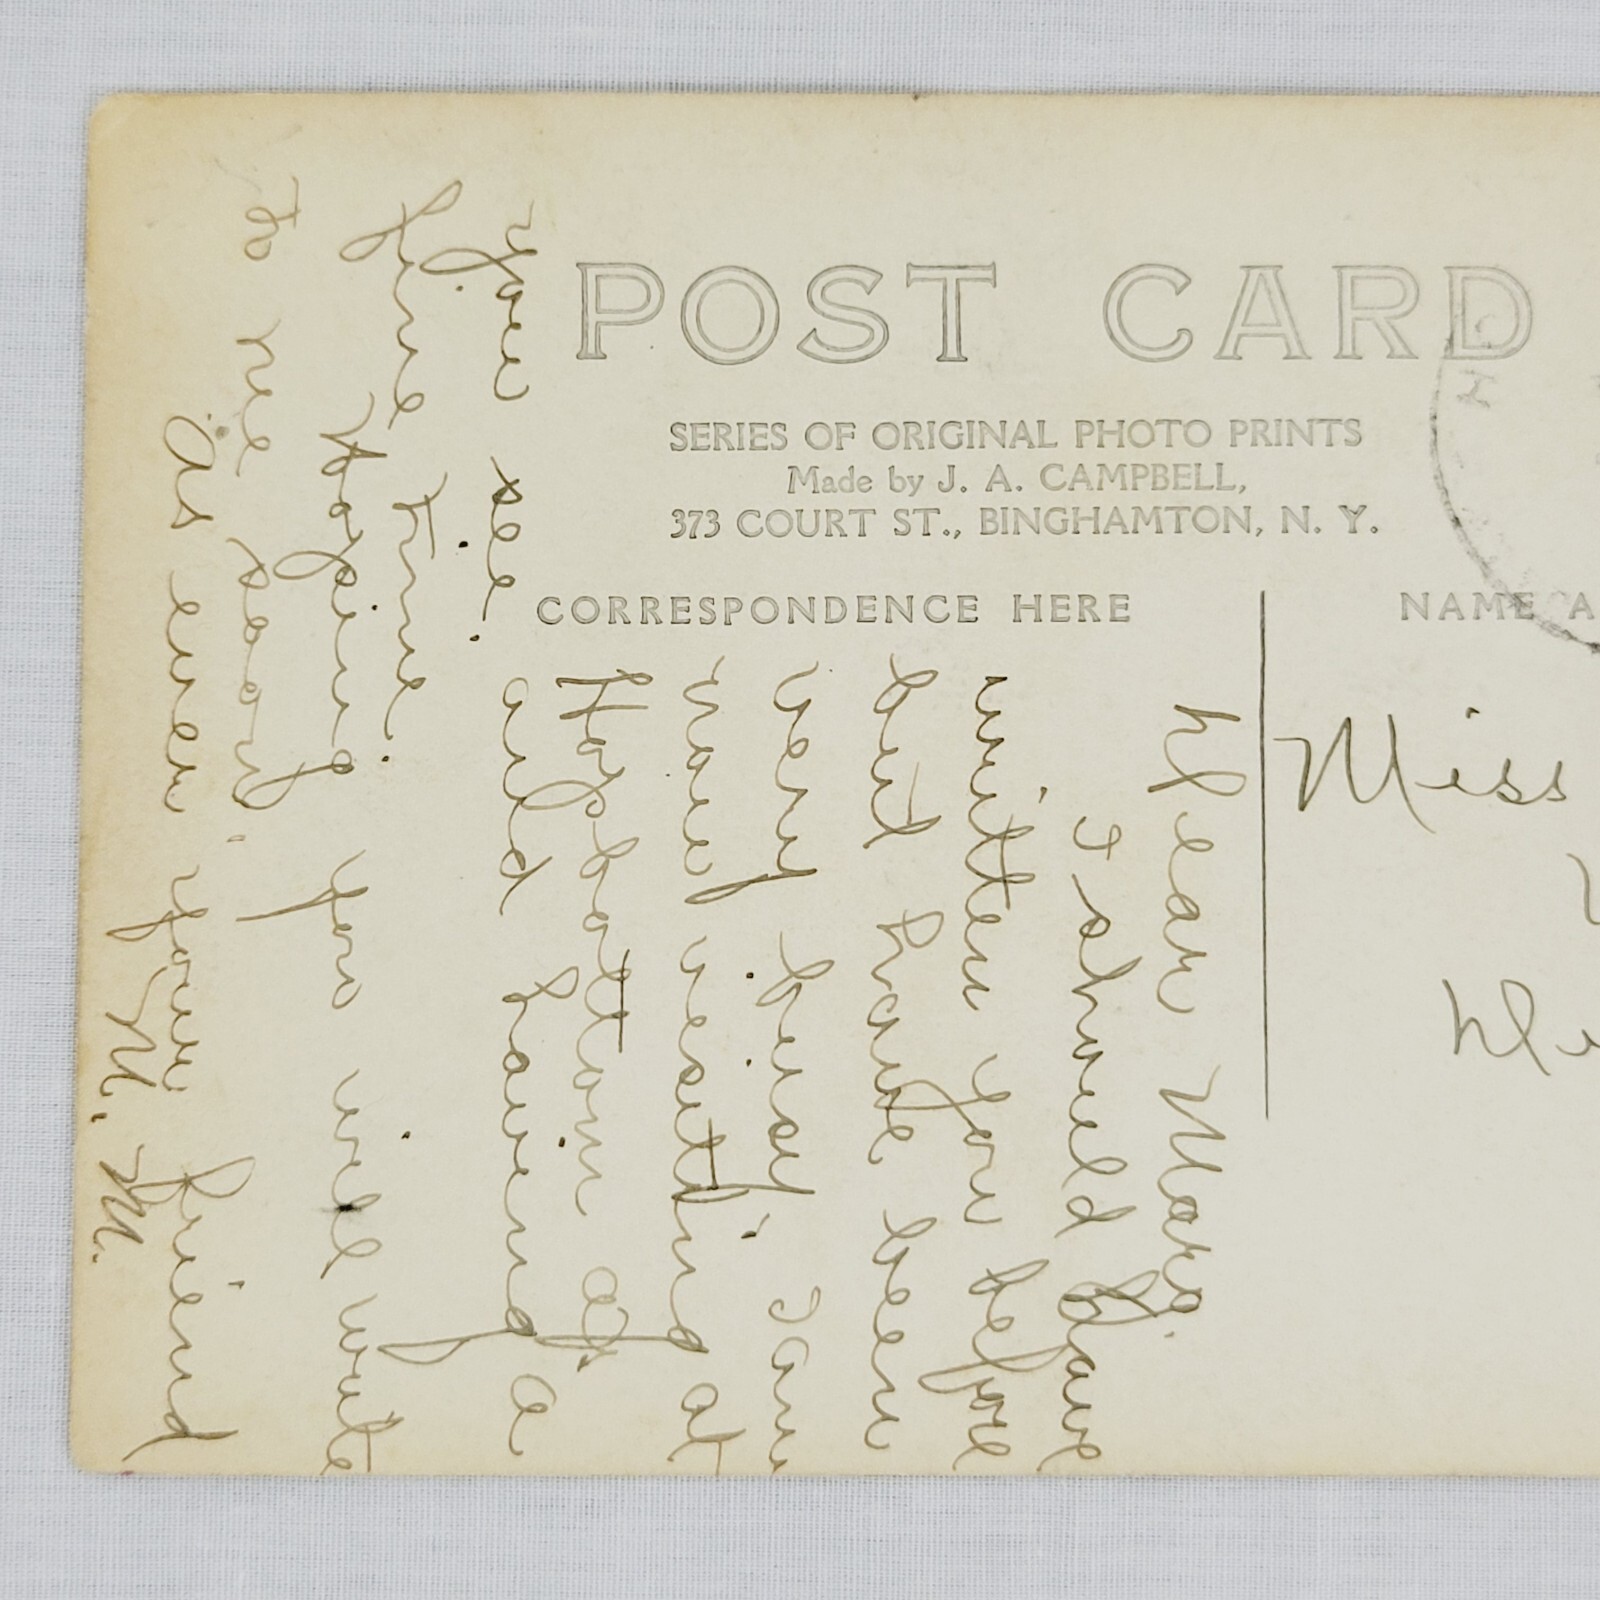 POST CARD
SERIES OF ORIGINAL PHOTO PRINTS
Made by J. A. CAMPBELL,
373 COURT ST., BINGHAMTON, N. Y.
CORRESPONDENCE HERE
NAME A
Dear Mary.
I should have
written you before
but have been
very busy. I am
now visiting at
Hopbottom
you see. and having a
fine time.
Hoping you will write
to me soon.
As ever your friend
M. M.
Miss